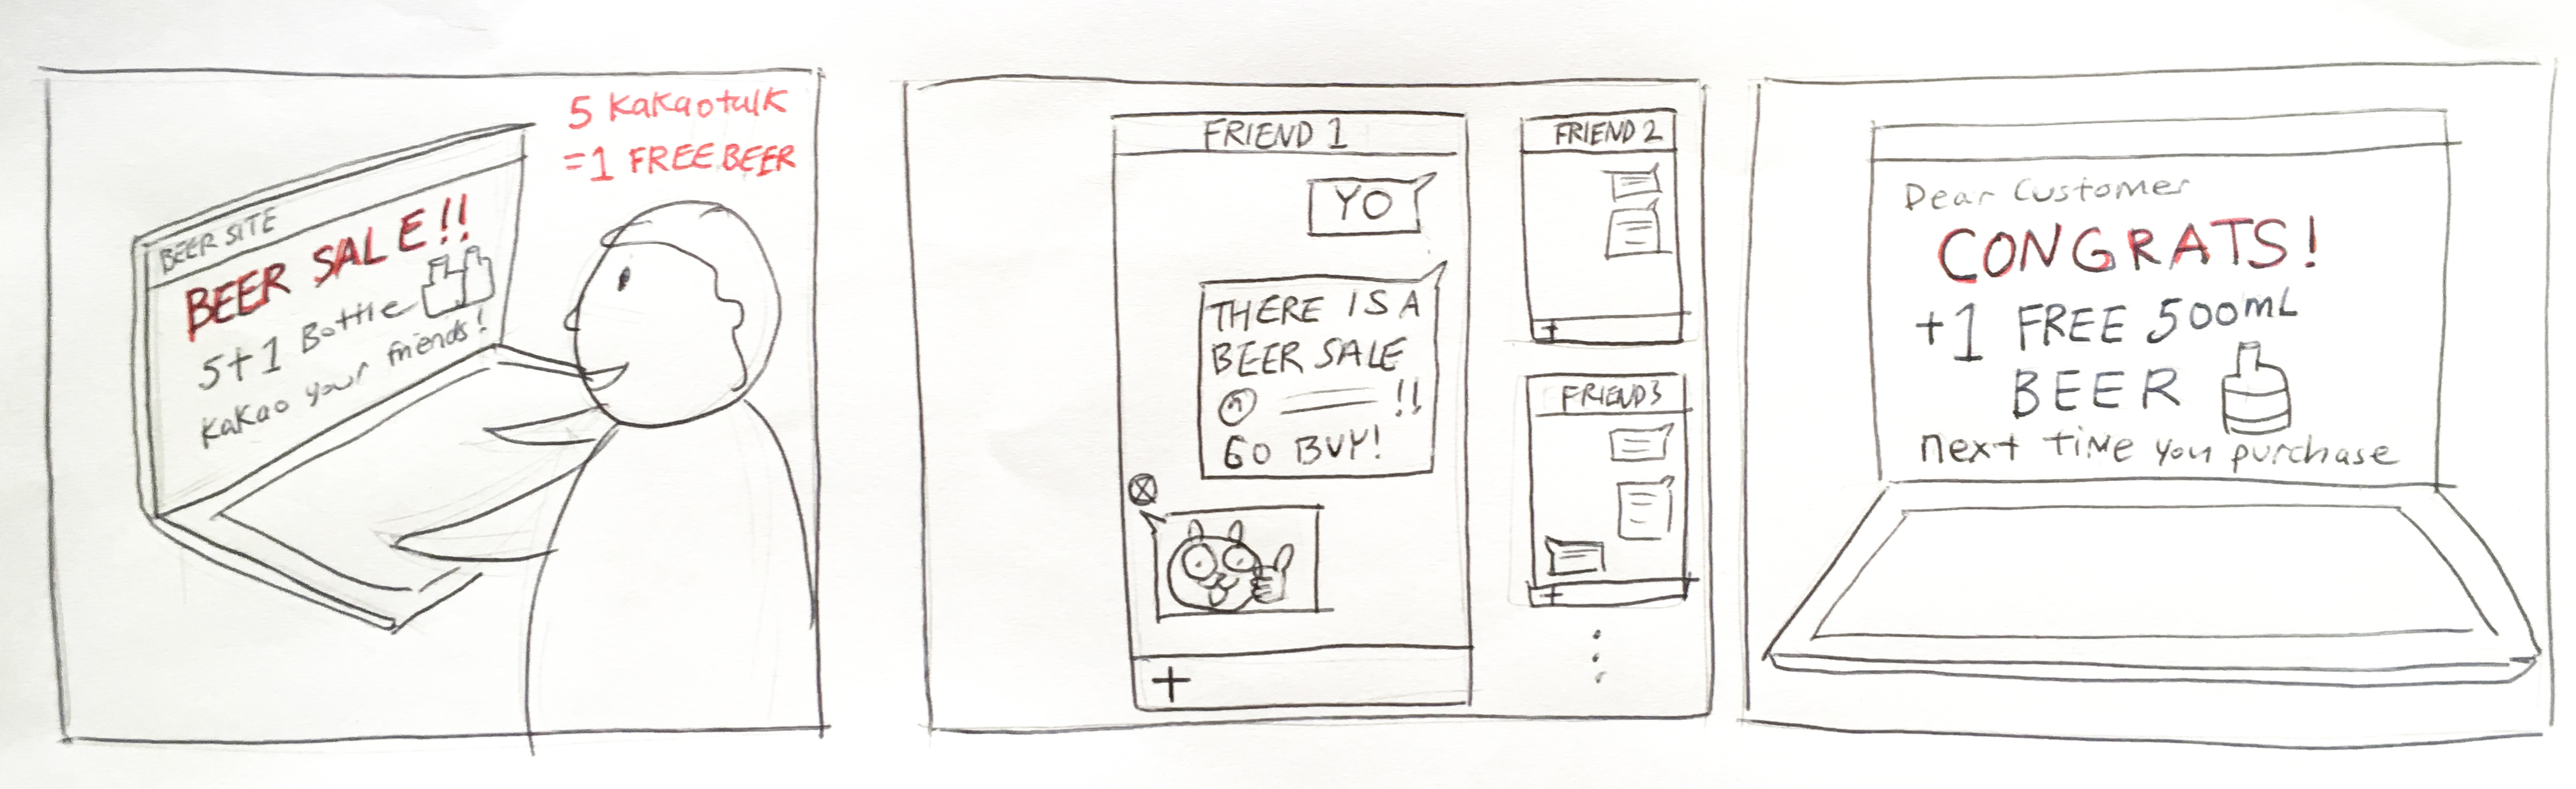 5 Kakaotalk
=1 FREE BEER
BEER SITE
BEER SALE!!
5+1 Bottle
Kakao your friends!
FRIEND 1
YO
THERE IS A
BEER SALE
!!
GO BUY!
+
FRIEND 2
+
FRIEND3
+
Dear Customer
CONGRATS!
+1 FREE 500mL
BEER
next time you purchase